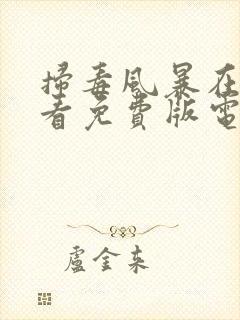 掃毒風暴在
看免費版電
盧金東